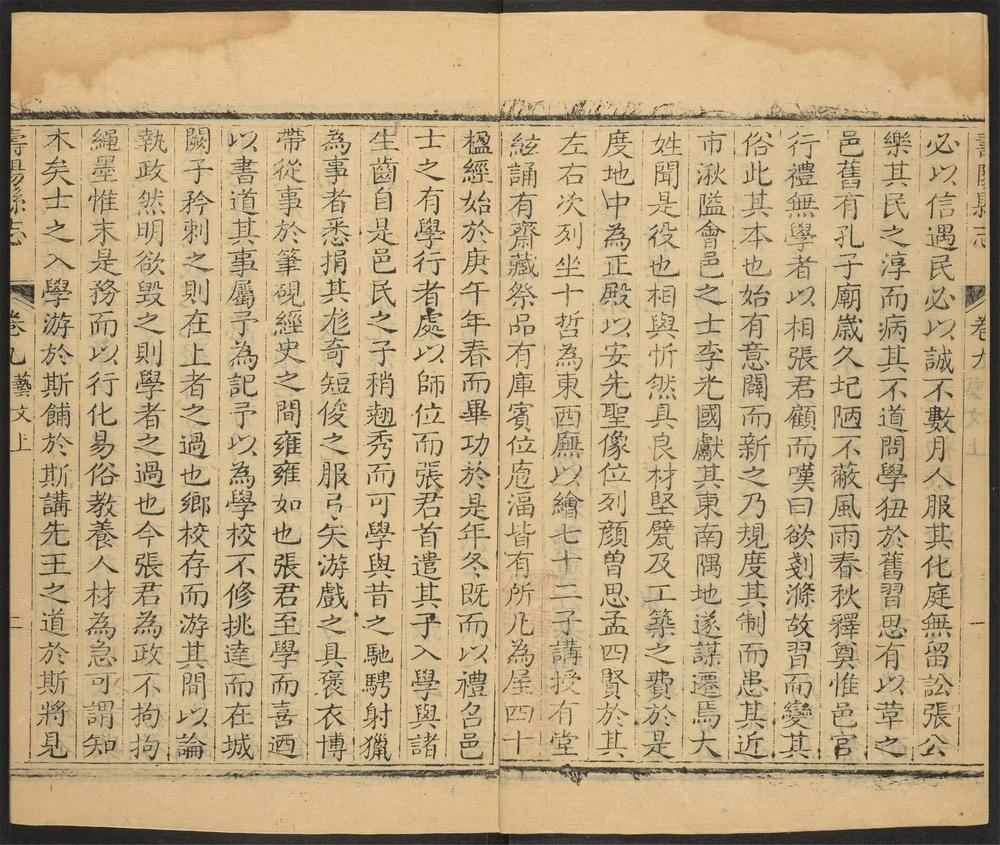 壽陽縣志 卷九 藝文上 一
必以信遇民必以誠不數月人服其化庭無留訟張公
樂其民之淳而病其不道問學狃於舊習思有以革之
邑舊有孔子廟歲久圮陋不蔽風雨春秋釋奠惟邑官
行禮無學者以相張君顧而嘆曰欲剗滌故習而變其
俗此其本也始有意闢而新之乃規度其制而患其近
市湫隘會邑之士李光國獻其東南隅地遂謀遷焉大
姓聞是役也相與忻然具良材堅甓及工築之費於是
度地中為正殿以安先聖像位列顏曾思孟四賢於其
左右次列坐十哲為東西廡以繪七十二子講授有堂
絃誦有齋藏祭品有庫賓位庖湢皆有所凡為屋四十
楹經始於庚午年春而畢功於是年冬既而以禮召邑
士之有學行者處以師位而張君首遣其子入學與諸
生齒自是邑民之子稍翹秀而可學與昔之馳騁射獵
為事者悉捐其尨奇短俊之服弓矢游戲之具褒衣博
帶從事於筆硯經史之間雍雍如也張君至學而喜迺
以書道其事屬予為記予以為學校不修挑達而在城
闕子矜刺之則在上者之過也鄉校存而游其間以論
執政然明欲毀之則學者之過也今張君為政不拘拘
繩墨惟末是務而以行化易俗教養人材為急可謂知
木矣士之入學游於斯餔於斯講先王之道於斯將見
壽陽縣志 卷九 藝文上 二